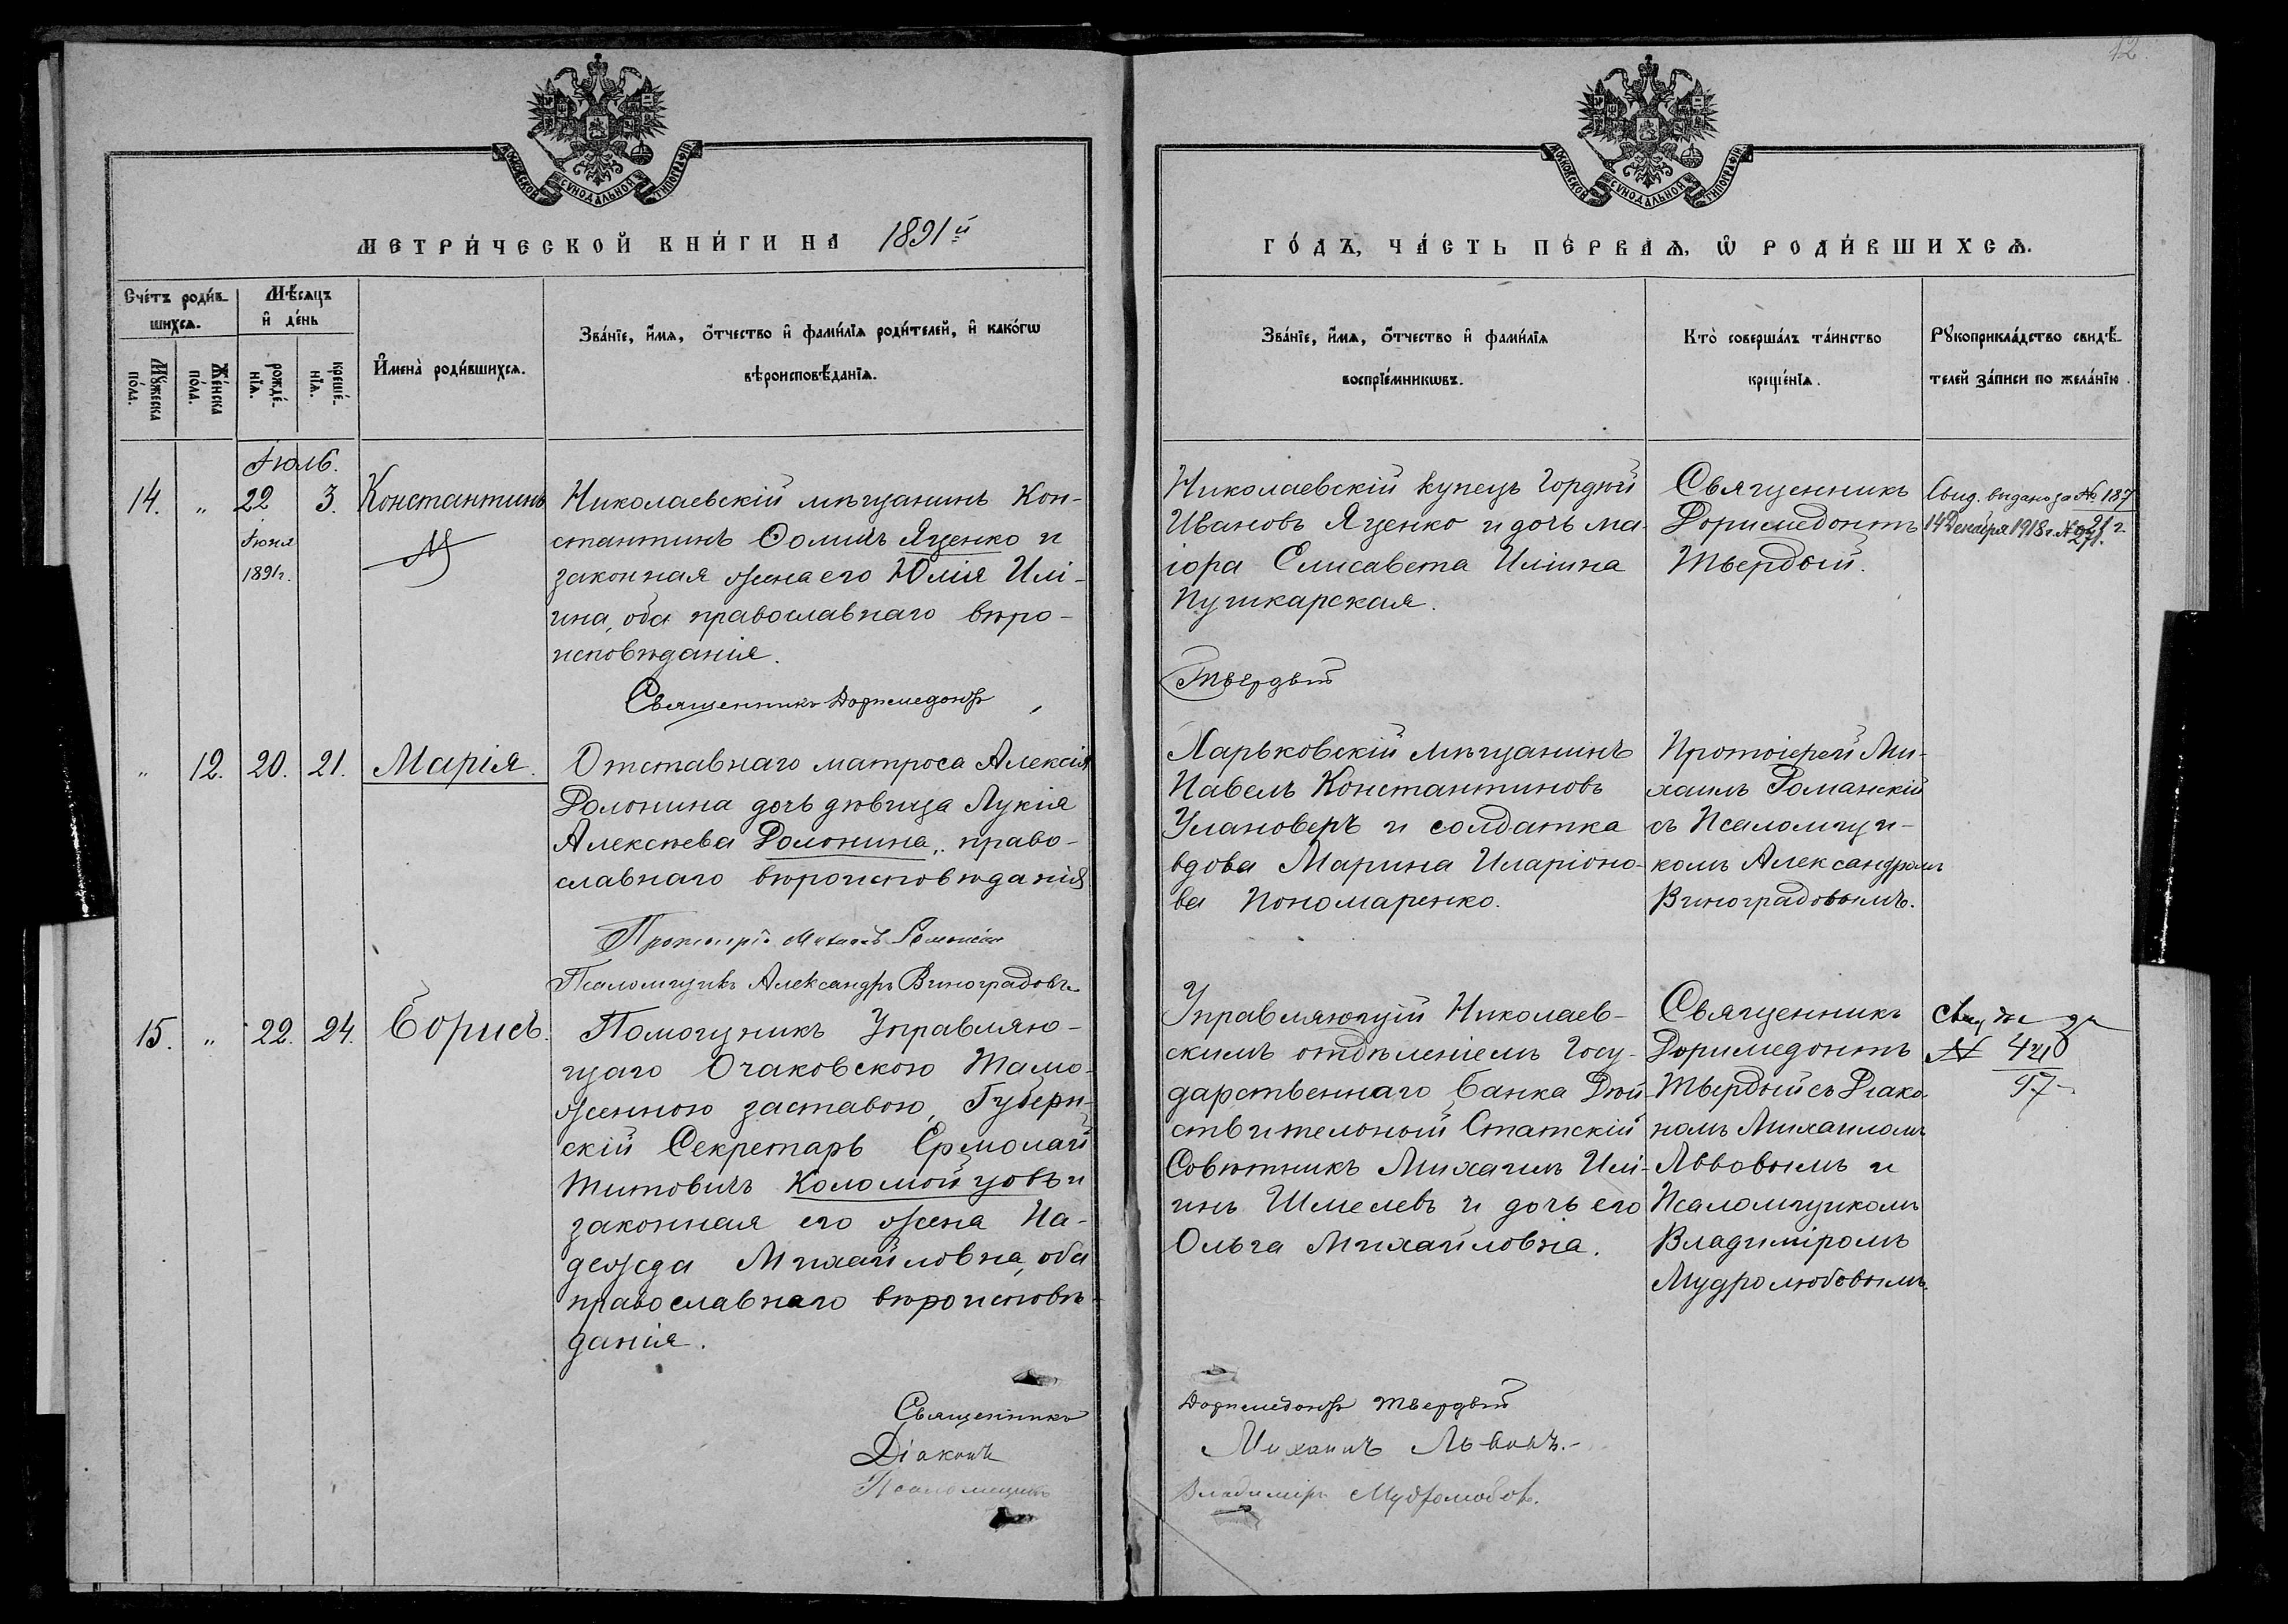 12.
МОСКОВСКОЙ СУНОДАЛЬНОЙ ТИПОГРАФІИ
МОСКОВСКОЙ СУНОДАЛЬНОЙ ТИПОГРАФІИ
МЕТРИ́ЧЕСКОЙ КНИ́ГИ НА 1891й
ГО́ДЪ, ЧА́СТЬ ПЕ́РВАѦ, Ѿ РОДИ́ВШИХСѦ.
Сче́тъ роди́в-
шихсѧ.
Мѣ́сѧцъ
и де́нь
Мꙋ́жеска по́ла.
Же́нска по́ла.
рожде́-
нїѧ.
креще́-
нїѧ.
Имена̀ роди́вшихсѧ.
Зва́нїе, и́мѧ, о́тчество и фами́лїѧ роди́телей, и како́гѡ
вѣроисповѣ́данїѧ.
Зва́нїе, и́мѧ, о́тчество и фами́лїѧ
воспрїе́мникѡвъ.
Кто̀ соверша́лъ та́инство
креще́нїѧ.
Рꙋкоприкла́дство свидѣ́-
телей за́писи по жела́нїю.
Іюль.
14. „ 22 3. Константинъ
Іюня
1891г.
Николаевскій мѣщанинъ Кон-
стантинъ Ѳоминъ Яценко и
законная жена его Юлія Илі-
ина, оба православнаго вѣро-
исповѣданія.
Священникъ Доримедонтъ
Николаевскій купецъ Гордѣй
Ивановъ Яценко и дочь ма-
іора Елисавета Иліина
Пушкарская.
Твердый
Священникъ
Доримедонтъ
Твердый.
Свид. выдано за № 187
14 Декабря 1918 г. №
„ 12. 20. 21. Марія.
Отставнаго матроса Алексія
Долонина дочь дѣвица Лукія
Алексѣева Долонина, право-
славнаго вѣроисповѣданія
Протоіерей Михаилъ Романскій
Псаломщикъ Александръ Виноградовъ
Харьковскій мѣщанинъ
Павелъ Константиновъ
Улановеръ и солдатка
вдова Марина Иларіоно-
ва Пономаренко.
Протоіерей Ми-
хаилъ Романскій
съ Псаломщи-
комъ Александромъ
Виноградовымъ.
15. „ 22. 24. Борисъ.
Помощникъ Управляю-
щаго Очаковскою Тамо-
женною заставою, Губерн-
скій Секретарь Ермолай
Титовичъ Коломойцовъ и
законная его жена На-
дежда Михайловна, оба
православнаго вѣроисповѣ-
данія.
Священникъ
Діаконъ
Псаломщикъ
Управляющій Николаев-
скимъ отдѣленіемъ Госу-
дарственнаго Банка Дѣй-
ствительный Статскій
Совѣтникъ Михаилъ Илі-
инъ Шмелевъ и дочь его
Ольга Михайловна.
Доримедонтъ Твердый
Михаилъ Львовъ.-
Владиміръ Мудролюбовъ.
Священникъ
Доримедонтъ
Твердый съ Діако-
номъ Михаиломъ
Львовымъ и
Псаломщикомъ
Владиміромъ
Мудролюбовымъ.
№
97